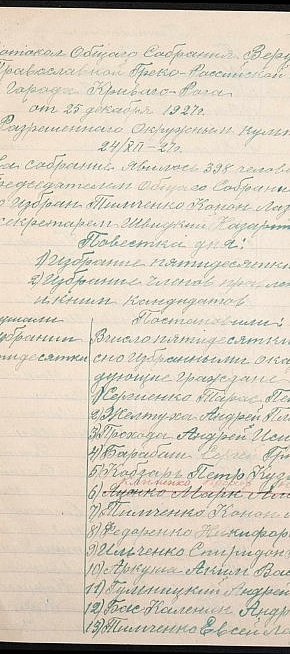 ротокол Общаго Собрания Веру
Православной Греко-Российской
Города Кривого-Рога
от 25 декабря 1927г.
Разрешенного Окружным
24/XII-27г.
собрание явилось 398 челове
редседателем Общаго Собрани
Избран Тимченко Конон Лаз
секретарем Швидкий Назар
Повестка дня:
1) Избрание пятидесятки
2) Избрание членов
и к ним кандидатов
ушали
збрании
тидесятки
Постановили:
В число пятидесятки
сно Избранными ока
дующие граждане
1) Сергиенко Тарас Пе
2) Желтуха Андрей Пл
3) Проходa Андрей Иси
4) Барабаш Сергей Гри
5) Кобзарь Петр Куз
6) Луценко Марк
7) Тимченко Конон
8) Федоренко Никифор
9) Ильченко Спиридон
10) Аркуша Аким Вас
11) Гульницкий Андрей
12) Бас Каленик Андр
13) Тимченко Евсей